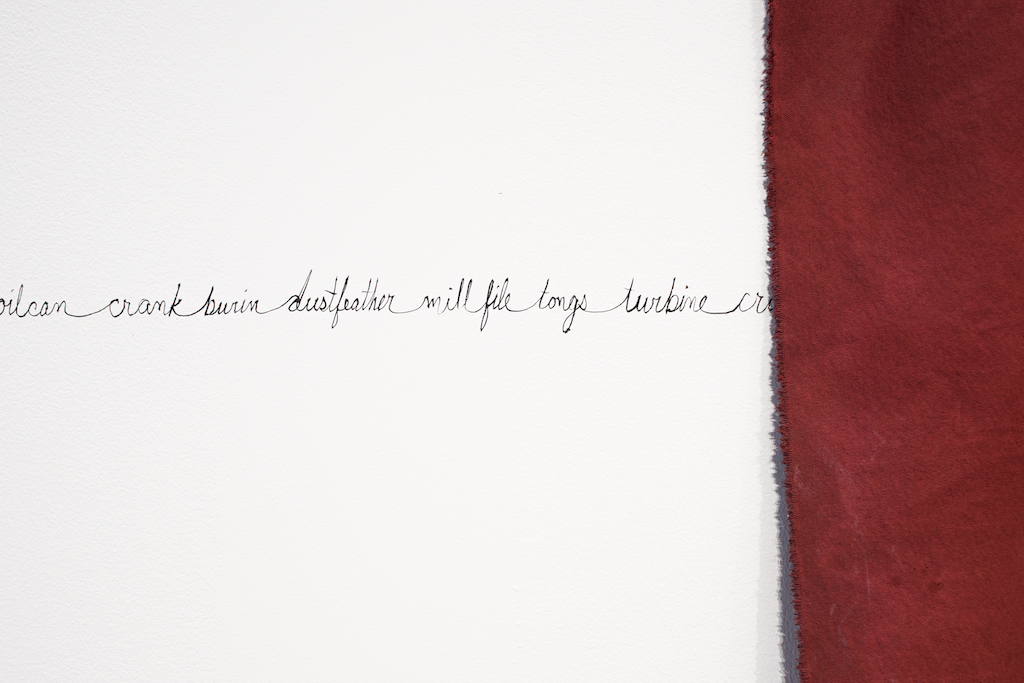 oilcan crank burin dustfeather mill file tongs turbine